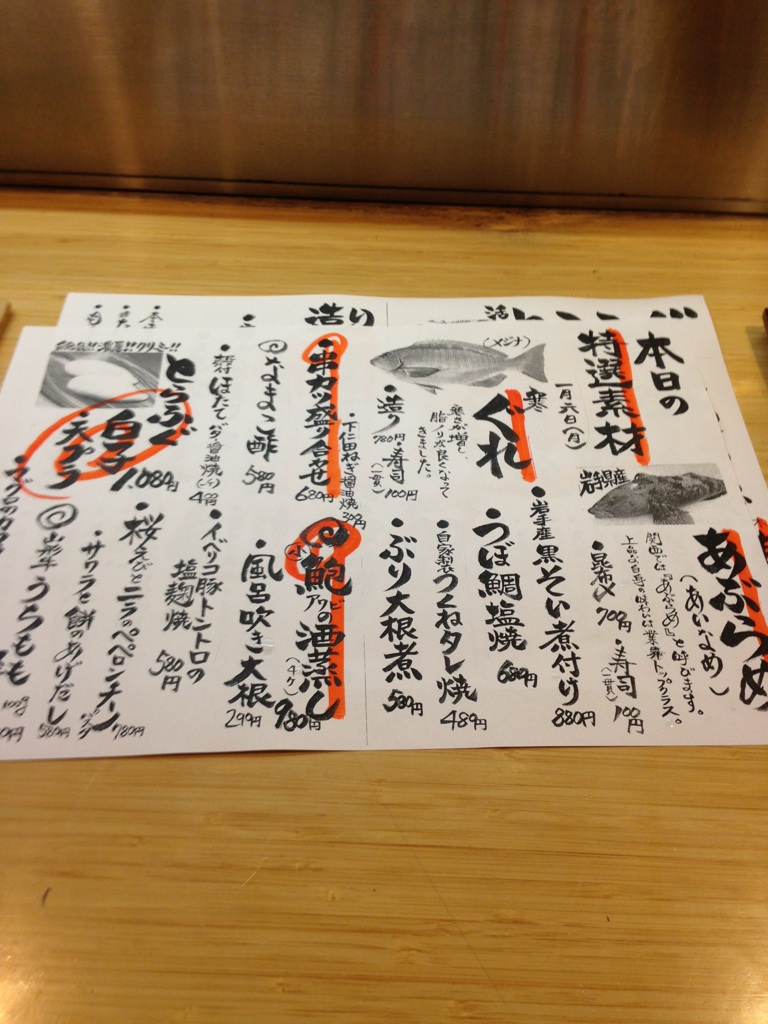 本日の
特選素材
一月六日(月)
寒ぐれ
(メジナ)
寒さが増し、
脂ノリが良くなって
きました。
・造り 780円・寿司(一貫)100円
・下仁田ねぎ醤油焼 300円
・串カツ盛り合せ 680円
なまこ酢 580円
ほたてバター醤油焼 (一ヶ) 4
とらふぐ
白子
・天プラ 1,080円
絶品!!濃厚!!クリーミー!!
岩手県産
あぶらめ
(あいなめ)
関西では『あぶらめ』と呼びます。
上品な白身の味わいは業界トップクラス。
・昆布〆 700円・寿司(一貫)100円
・岩手産黒そい煮付け 880円
・うつぼ鯛塩焼 680円
・自家製つくねタレ焼 489円
・ぶり大根煮 580円
小鮑アワビの酒蒸し 980円
・風呂吹き大根 299円
・イベリコ豚トントロの
塩麹焼 580円
・桜えびとニラのペペロンチーノ 780円
・サワラと餅のあげだし 580円
山形牛うちもも 100g
造り